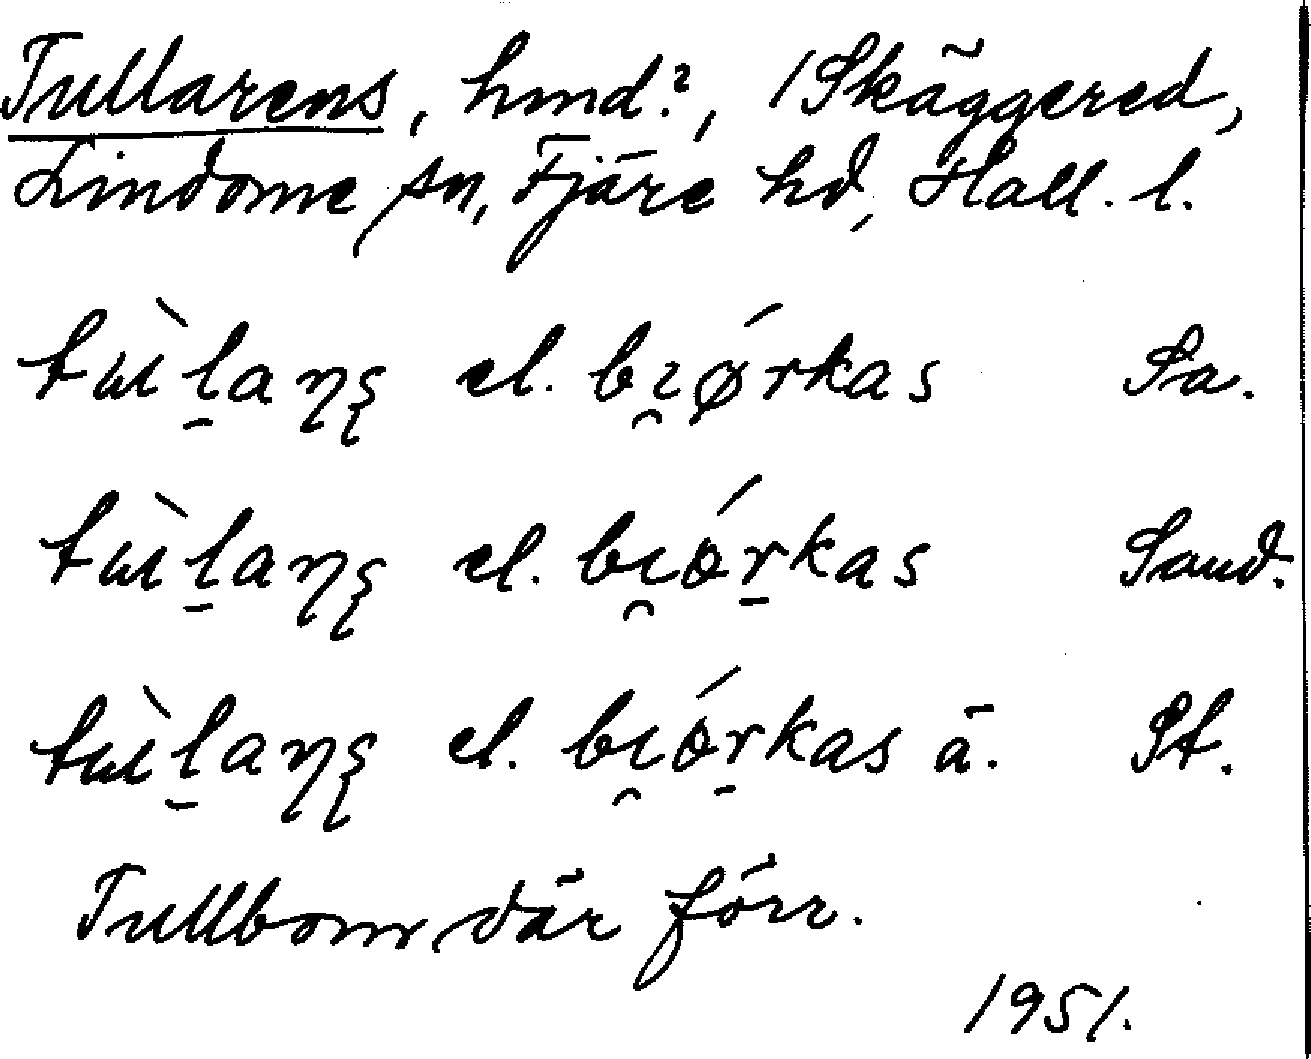 Tullarens, hmd.?, 1 Skäggered,
Lindome sn, Fjäre hd, Hall. l.
tɯ̀l̠aɳʂ el. bı̯ǿrkas Sa.
tɯ̀l̠aɳʂ el. bı̯ór̠kas Sand.
tɯ̀l̠aɳʂ el. bı̯ór̠kas ä. St.
Tullbom där förr.
1951.